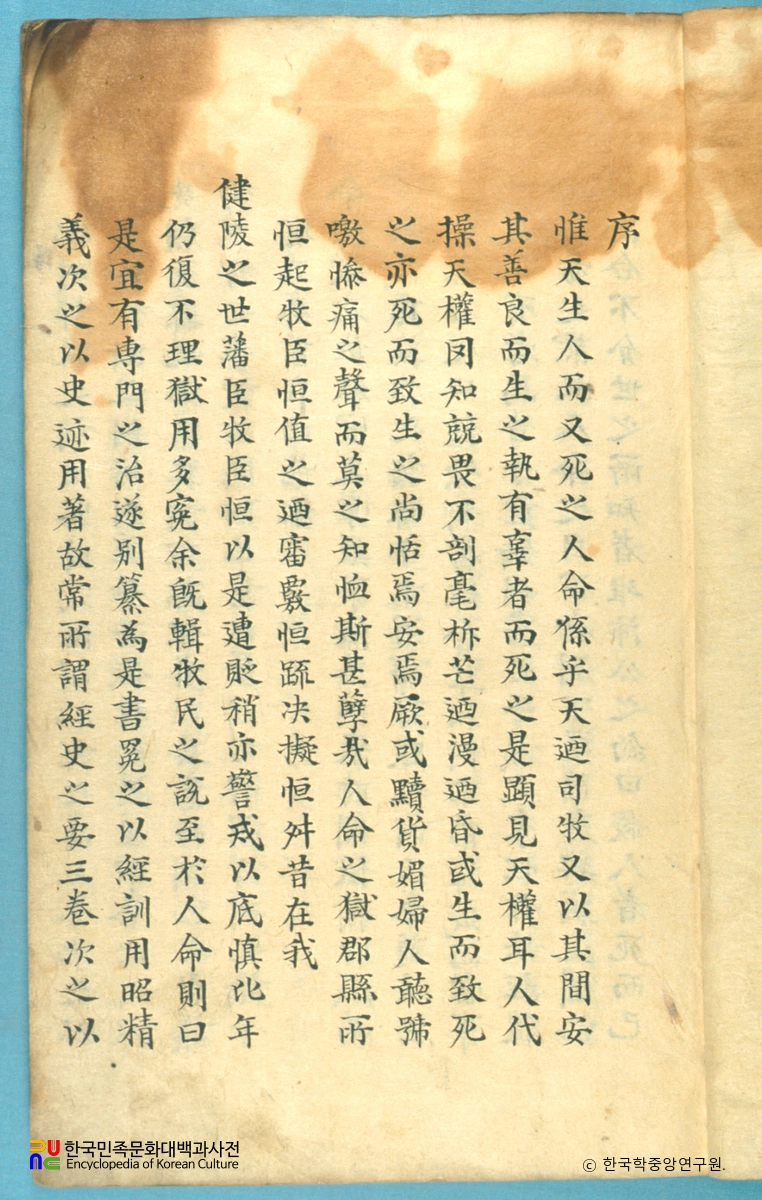 序
惟天生人而又死之人命係乎天廼司牧又以其間安
其善良而生之執有辠者而死之是顯見天權耳人代
操天權罔知兢畏不剖毫析芒廼漫廼昏或生而致死
之亦死而致生之尚恬焉安焉厥或黷貨媚婦人聽號
噭慘痛之聲而莫之知恤斯甚孽㢤人命之獄郡縣所
恒起牧臣恒值之廼審覈恒疏决擬恒舛昔在我
健陵之世藩臣牧臣恒以是遭貶稍亦警戒以底慎比年
仍復不理獄用多寃余旣輯牧民之說至於人命則曰
是宜有專門之治遂别纂為是書冕之以經訓用昭精
義次之以史迹用著故常所謂經史之要三卷次之以
한국민족문화대백과사전
Encyclopedia of Korean Culture
© 한국학중앙연구원.